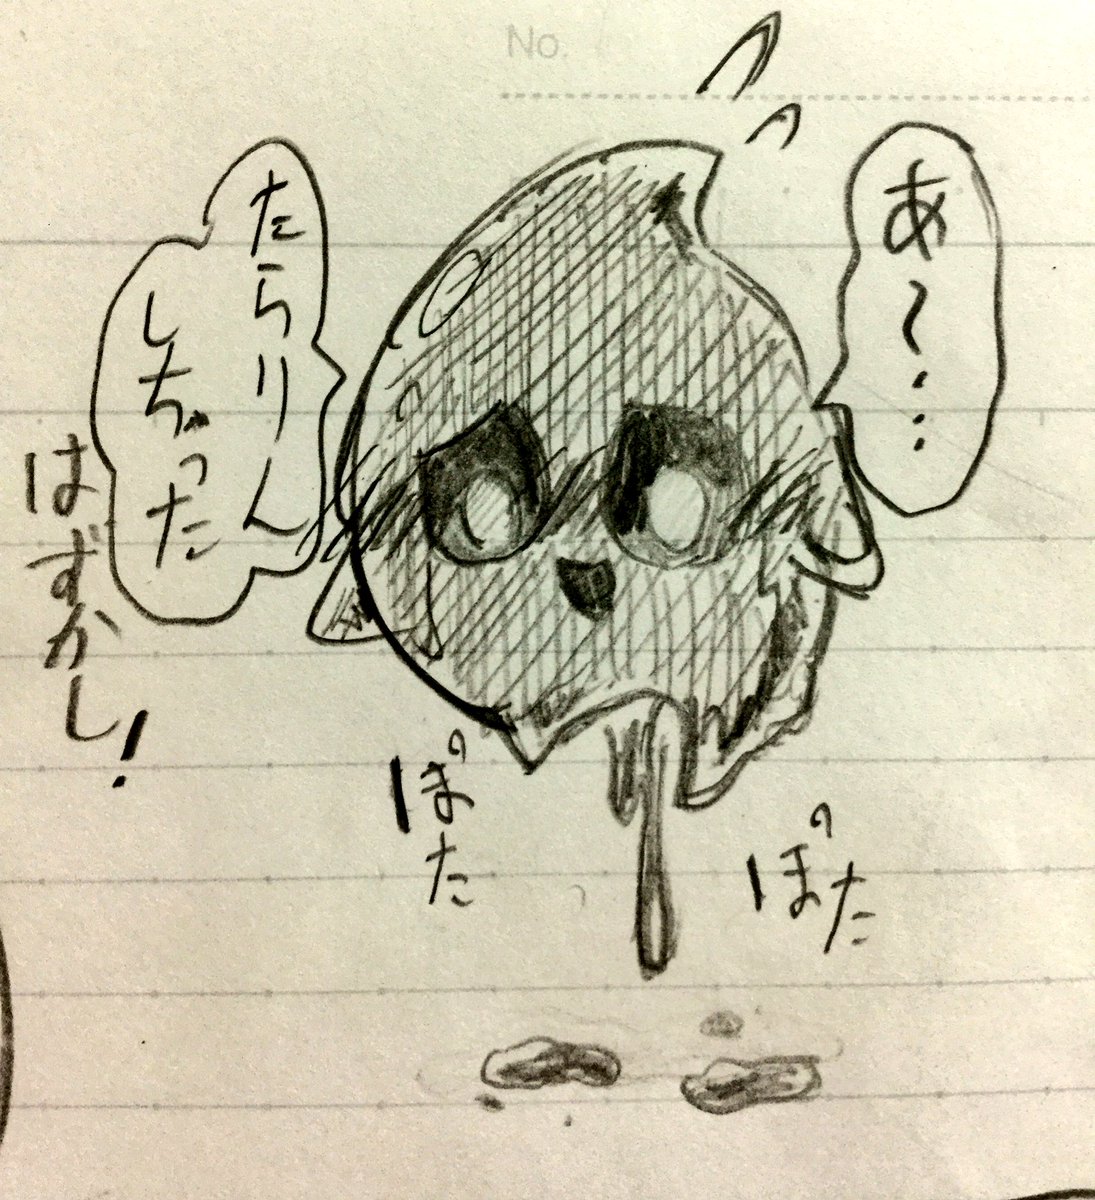 No.
あ〜……
たらりん
しちゃった
はずかし!
ぽた
ぽた